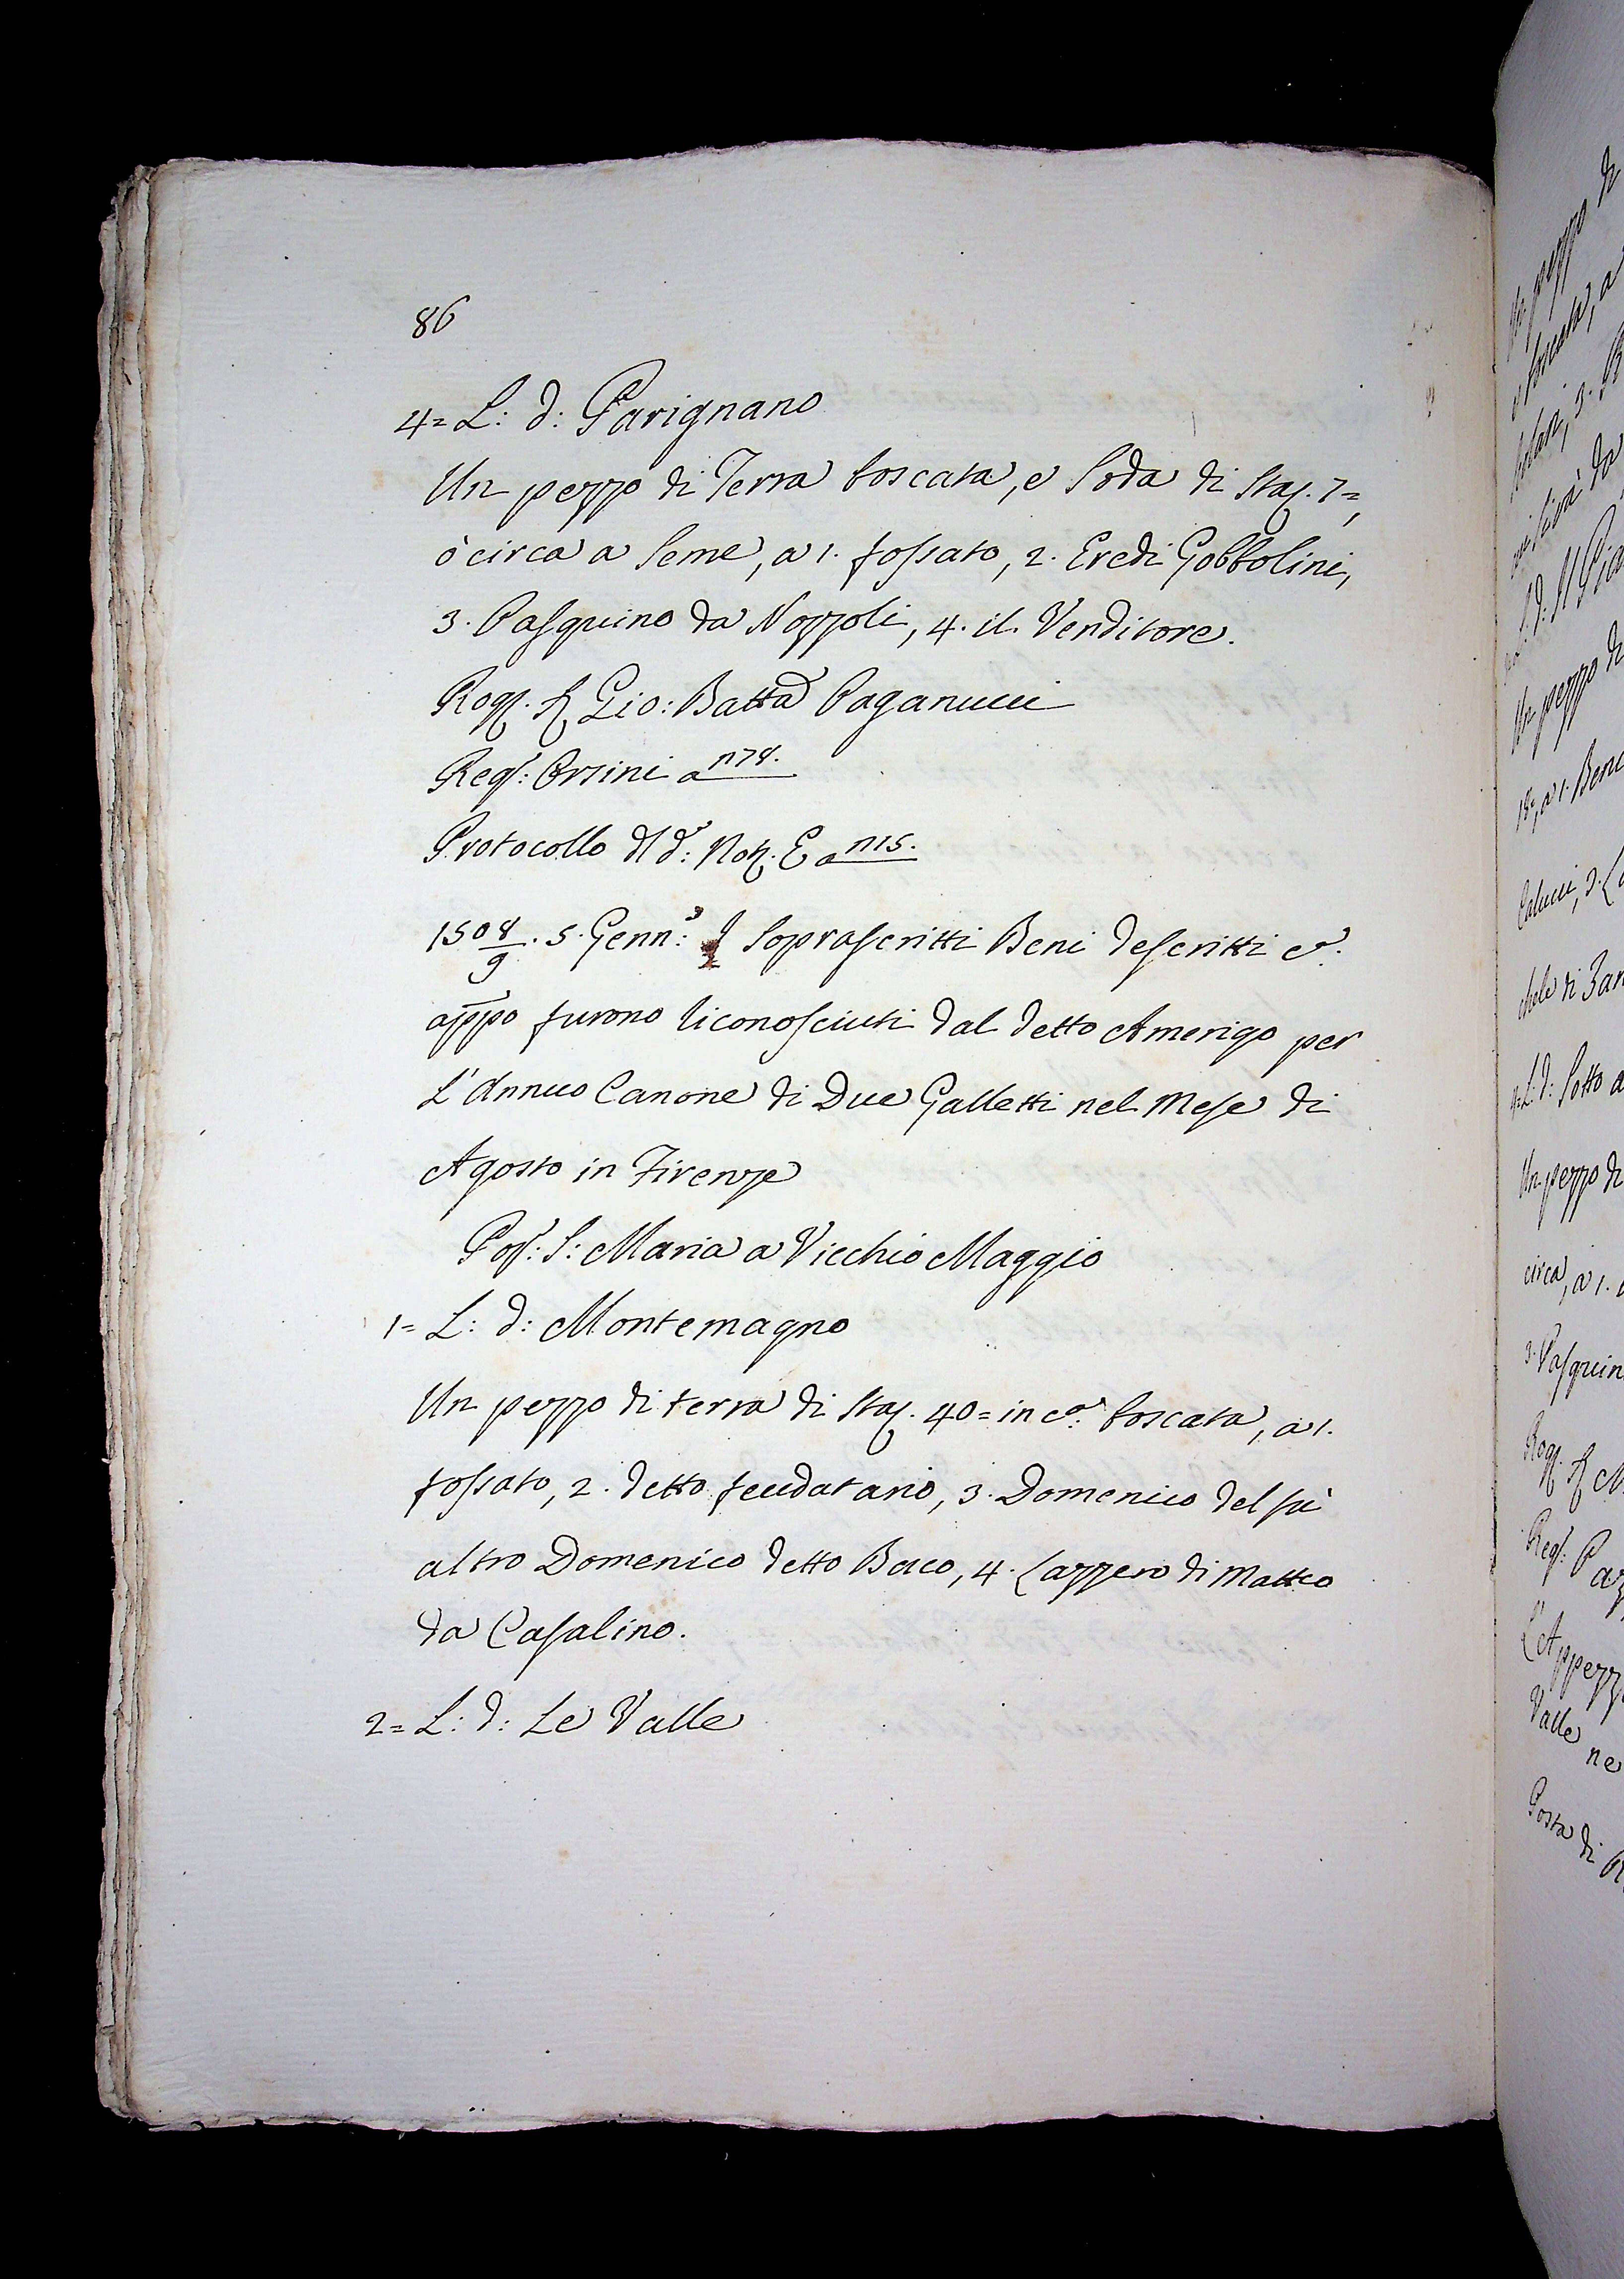 86
4= L: d: Parignano
Un pezzo di Terra boscata, e Soda di Staj. 7=,
ò circa a Seme, a 1. fossato, 2. Eredi Gobbolini,
3. Pasquino da Nozzoli, 4. il Venditore.
Rog. Gio: Batta Paganucci
Reg: Orsini a n 78.
Protocollo d d: Not. E a n 15.
150 8/9. 5. Genn: I Soprascritti Beni descritti
appo furono riconosciuti dal detto Amerigo per
L'Annuo Canone di Due Galletti nel Mese di
Agosto in Firenze
Pos: S: Maria a Vicchio Maggio
1= L: d: Montemagno
Un pezzo di terra di Staj. 40= in ca. boscata, a 1.
fossato, 2. detto feudatario, 3. Domenico del fù
altro Domenico detto Beco, 4. Lazzero di Matteo
da Casalino.
2= L: d: Le Valle
Un pezzo di
e boscata, a
3. B
Un pezzo di
18=, a 1. Bene
chele di Zan
L: d: Sotto a
Un pezzo di
circa, a 1.
3. Pasquin
Rog.
Reg: Paz
L'Appezz
Valle ne
Posta di